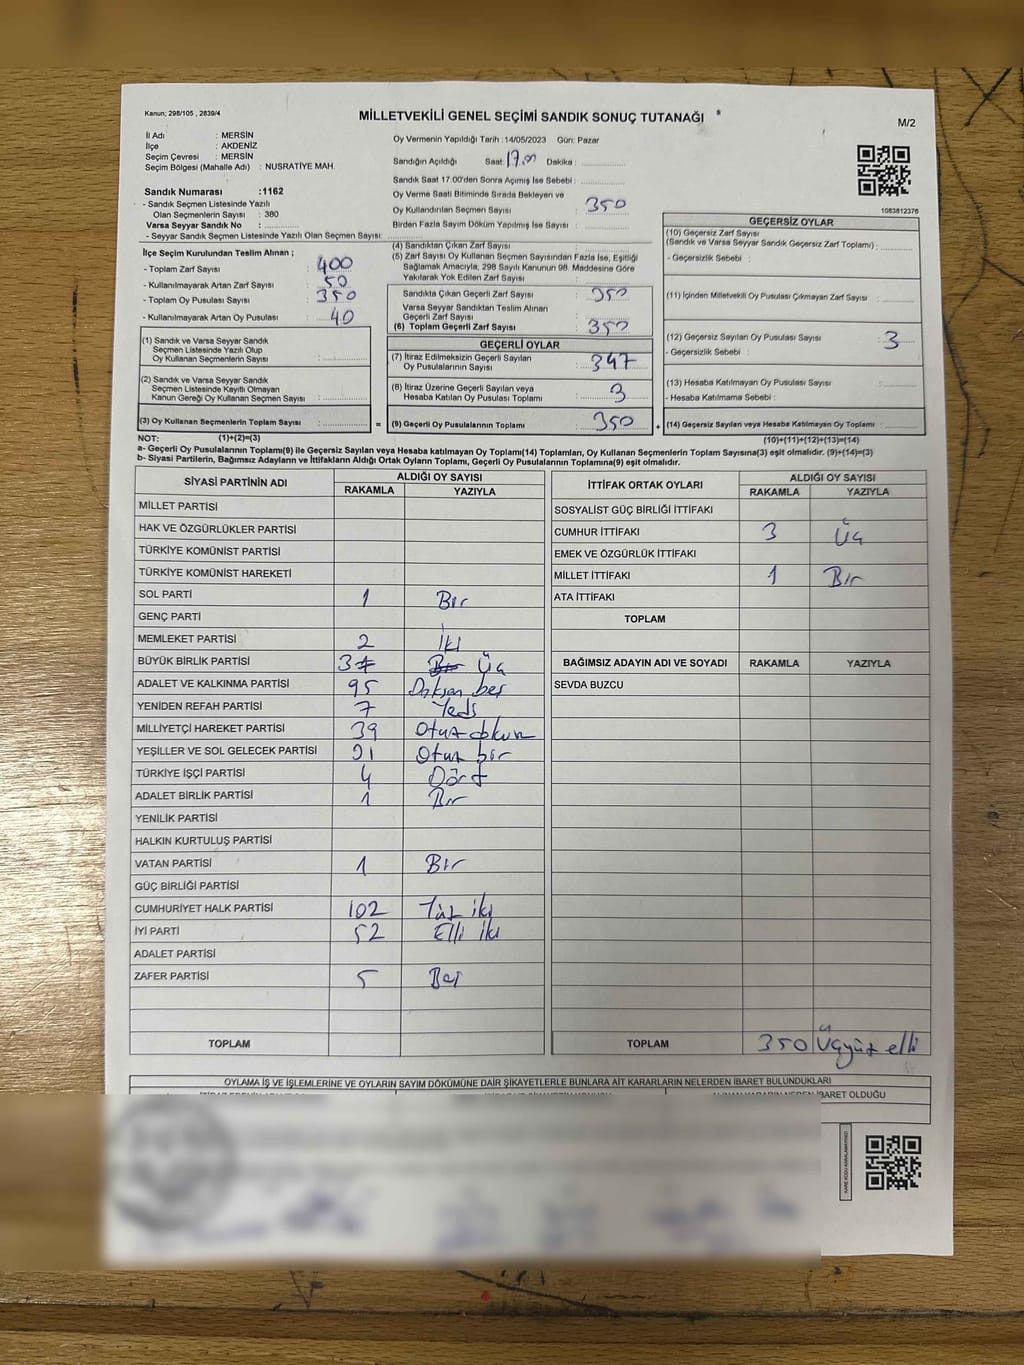 Kanun; 298/105 , 2839/4
MİLLETVEKİLİ GENEL SEÇİMİ SANDIK SONUÇ TUTANAĞI *
M/2
İl Adı : MERSİN
İlçe : AKDENİZ
Seçim Çevresi : MERSİN
Seçim Bölgesi (Mahalle Adı) : NUSRATİYE MAH.
Sandık Numarası :1162
- Sandık Seçmen Listesinde Yazılı
Olan Seçmenlerin Sayısı : 380
Varsa Seyyar Sandık No :
- Seyyar Sandık Seçmen Listesinde Yazılı Olan Seçmen Sayısı:
Oy Vermenin Yapıldığı Tarih :14/05/2023 Gün: Pazar
Sandığın Açıldığı Saat: 17.00 Dakika :
Sandık Saat 17.00'den Sonra Açımış İse Sebebi :
Oy Verme Saati Bitiminde Sırada Bekleyen ve
Oy Kullandırılan Seçmen Sayısı : 350
Birden Fazla Sayım Döküm Yapılmış İse Sayısı :
1083812376
İlçe Seçim Kurulundan Teslim Alınan ;
- Toplam Zarf Sayısı : 400
- Kullanılmayarak Artan Zarf Sayısı : 50
- Toplam Oy Pusulası Sayısı : 350
- Kullanılmayarak Artan Oy Pusulası : 40
(1) Sandık ve Varsa Seyyar Sandık
Seçmen Listesinde Yazılı Olup
Oy Kullanan Seçmenlerin Sayısı :
(2) Sandık ve Varsa Seyyar Sandık
Seçmen Listesinde Kayıtlı Olmayan
Kanun Gereği Oy Kullanan Seçmen Sayısı :
(3) Oy Kullanan Seçmenlerin Toplam Sayısı : =
(4) Sandıktan Çıkan Zarf Sayısı :
(5) Zarf Sayısı Oy Kullanan Seçmen Sayısından Fazla İse, Eşitliği
Sağlamak Amacıyla, 298 Sayılı Kanunun 98. Maddesine Göre
Yakılarak Yok Edilen Zarf Sayısı :
Sandıkta Çıkan Geçerli Zarf Sayısı : 350
Varsa Seyyar Sandıktan Teslim Alınan
Geçerli Zarf Sayısı :
(6) Toplam Geçerli Zarf Sayısı : 350
GEÇERLİ OYLAR
(7) İtiraz Edilmeksizin Geçerli Sayılan
Oy Pusulalarının Sayısı : 347
(8) İtiraz Üzerine Geçerli Sayılan veya
Hesaba Katılan Oy Pusulası Toplamı : 3
(9) Geçerli Oy Pusulalarının Toplamı : 350 +
GEÇERSİZ OYLAR
(10) Geçersiz Zarf Sayısı
(Sandık ve Varsa Seyyar Sandık Geçersiz Zarf Toplamı) :
- Geçersizlik Sebebi :
(11) İçinden Milletvekili Oy Pusulası Çıkmayan Zarf Sayısı :
(12) Geçersiz Sayılan Oy Pusulası Sayısı : 3
- Geçersizlik Sebebi :
(13) Hesaba Katılmayan Oy Pusulası Sayısı :
- Hesaba Katılmama Sebebi :
(14) Geçersiz Sayılan veya Hesaba Katılmayan Oy Toplamı :
NOT: (1)+(2)=(3) (10)+(11)+(12)+(13)=(14)
a- Geçerli Oy Pusulalarının Toplamı(9) ile Geçersiz Sayılan veya Hesaba katılmayan Oy Toplamı(14) Toplamları, Oy Kullanan Seçmenlerin Toplam Sayısına(3) eşit olmalıdır. (9)+(14)=(3)
b- Siyasi Partilerin, Bağımsız Adayların ve İttifakların Aldığı Ortak Oyların Toplamı, Geçerli Oy Pusulalarının Toplamına(9) eşit olmalıdır.
SİYASİ PARTİNİN ADI ALDIĞI OY SAYISI
RAKAMLA YAZIYLA
MİLLET PARTİSİ
HAK VE ÖZGÜRLÜKLER PARTİSİ
TÜRKİYE KOMÜNİST PARTİSİ
TÜRKİYE KOMÜNİST HAREKETİ
SOL PARTİ 1 Bir
GENÇ PARTİ
MEMLEKET PARTİSİ 2 İki
BÜYÜK BİRLİK PARTİSİ 3 Üç
ADALET VE KALKINMA PARTİSİ 95 Doksan beş
YENİDEN REFAH PARTİSİ 7 Yedi
MİLLİYETÇİ HAREKET PARTİSİ 39 Otuz dokuz
YEŞİLLER VE SOL GELECEK PARTİSİ 31 Otuz bir
TÜRKİYE İŞÇİ PARTİSİ 4 Dört
ADALET BİRLİK PARTİSİ 1 Bir
YENİLİK PARTİSİ
HALKIN KURTULUŞ PARTİSİ
VATAN PARTİSİ 1 Bir
GÜÇ BİRLİĞİ PARTİSİ
CUMHURİYET HALK PARTİSİ 102 Yüz iki
İYİ PARTİ 52 Elli iki
ADALET PARTİSİ
ZAFER PARTİSİ 5 Beş
TOPLAM
İTTİFAK ORTAK OYLARI ALDIĞI OY SAYISI
RAKAMLA YAZIYLA
SOSYALİST GÜÇ BİRLİĞİ İTTİFAKI
CUMHUR İTTİFAKI 3 Üç
EMEK VE ÖZGÜRLÜK İTTİFAKI
MİLLET İTTİFAKI 1 Bir
ATA İTTİFAKI
TOPLAM
BAĞIMSIZ ADAYIN ADI VE SOYADI RAKAMLA YAZIYLA
SEVDA BUZCU
TOPLAM 350 Üçyüz elli
OYLAMA İŞ VE İŞLEMLERİNE VE OYLARIN SAYIM DÖKÜMÜNE DAİR ŞİKAYETLERLE BUNLARA AİT KARARLARIN NELERDEN İBARET BULUNDUKLARI
ALINAN KARARIN NEDEN İBARET OLDUĞU